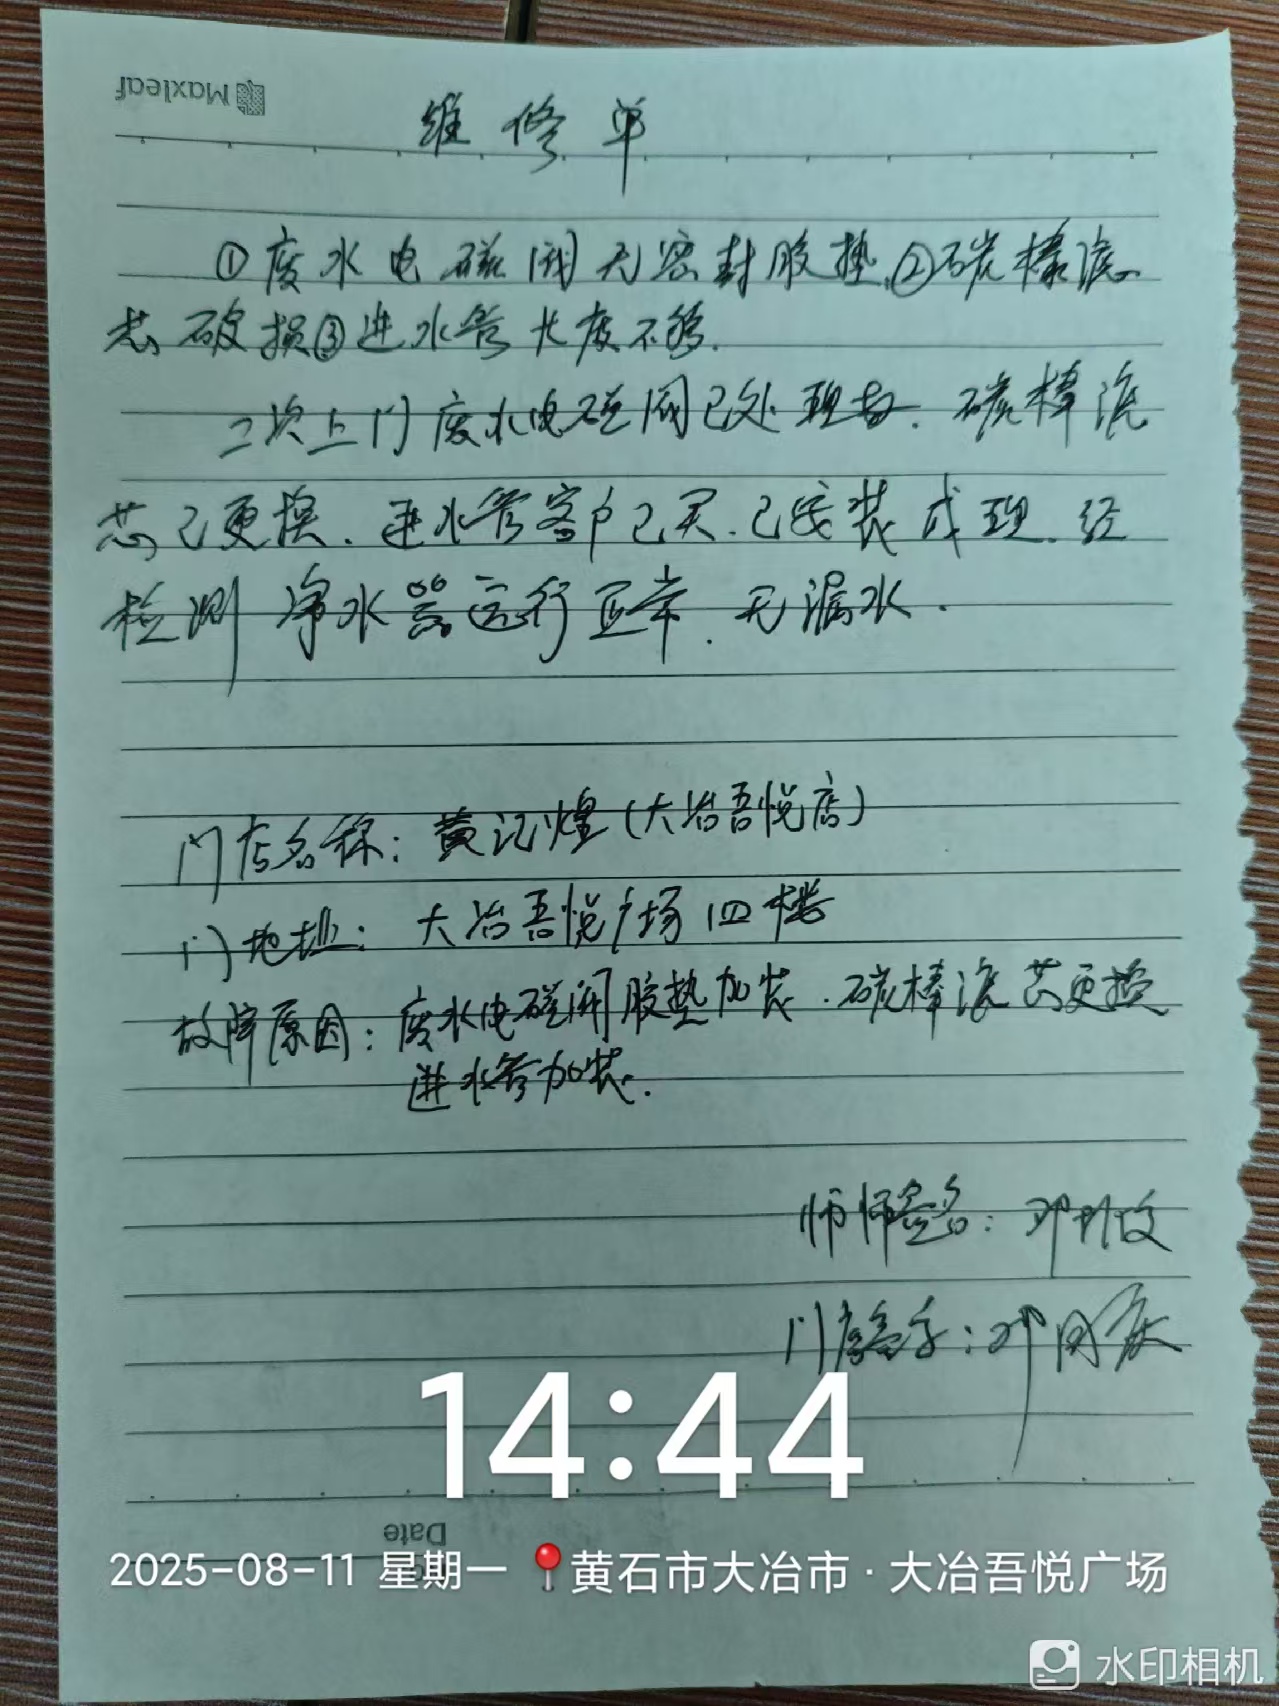 Maxleaf
维修单
①废水电磁阀无密封胶垫.②碳棒滤
芯破损③进水管长度不够.
二次上门废水电磁阀已处理好.碳棒滤
芯已更换.进水管客户已买.已安装成理.经
检测净水器运行正常.无漏水.
门店名称:黄记煌(大冶吾悦店)
门地址:大冶吾悦广场四楼
故障原因:废水电磁阀胶垫加装.碳棒滤芯更换
进水管加装.
师师签名:邓
门店签字:邓国庆
14:44
Date
2025-08-11 星期一 黄石市大冶市·大冶吾悦广场
水印相机